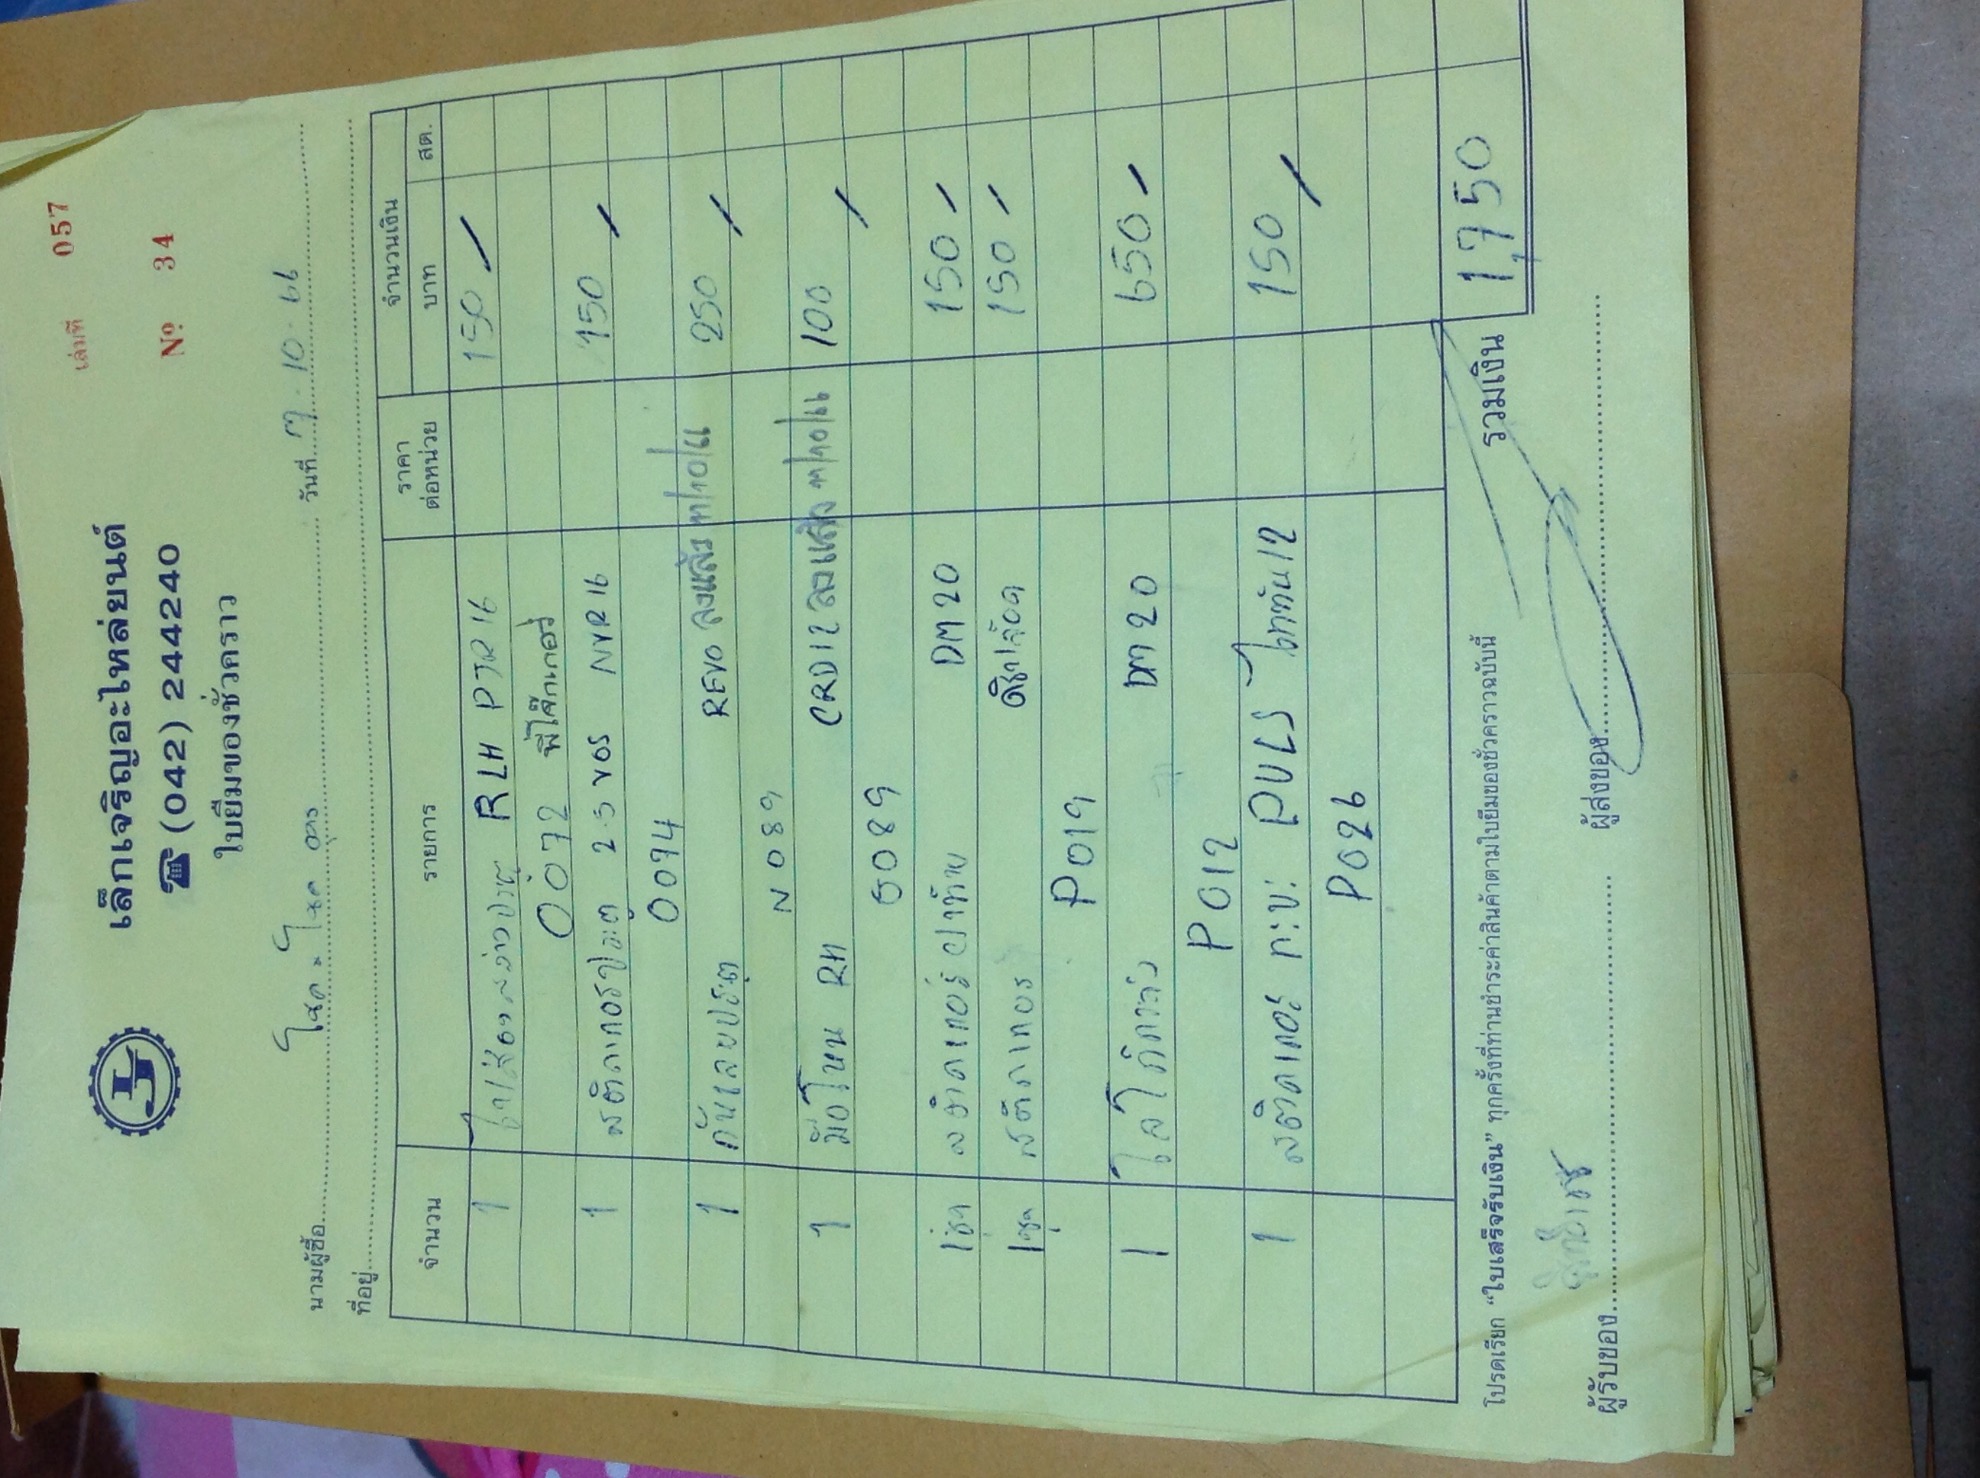 เล่มที่ 057
เล็กเจริญอะไหล่ยนต์
☎ (042) 244240
Nº 34
ใบยืมของชั่วคราว
นามผู้ซื้อ โชค.โชค อุดร วันที่ 7.10.66
ที่อยู่
จำนวน รายการ ราคาต่อหน่วย จำนวนเงิน
บาท สต.
1 RLH PTR16 150
0072
1 สติกเกอร์ประตู 2.5 NVR16 150
0074
1 กันเลยประตู REVO ลงแล้ว 250
N089
1 มือโหน RH CRD12 ลงแล้ว 100
G089
1 ชุด สติกเกอร์ฝาท้าย DM20 150
1 ชุด สติกเกอร์ 150
P019
1 โลโก้ DM20 650
P012
1 สติกเกอร์ กะบะ PULS ไททัน12 150
P026
รวมเงิน 1,750
โปรดเรียก “ใบเสร็จรับเงิน” ทุกครั้งที่ท่านชำระค่าสินค้าตามใบยืมของชั่วคราวฉบับนี้
ผู้รับของ ผู้ส่งของ